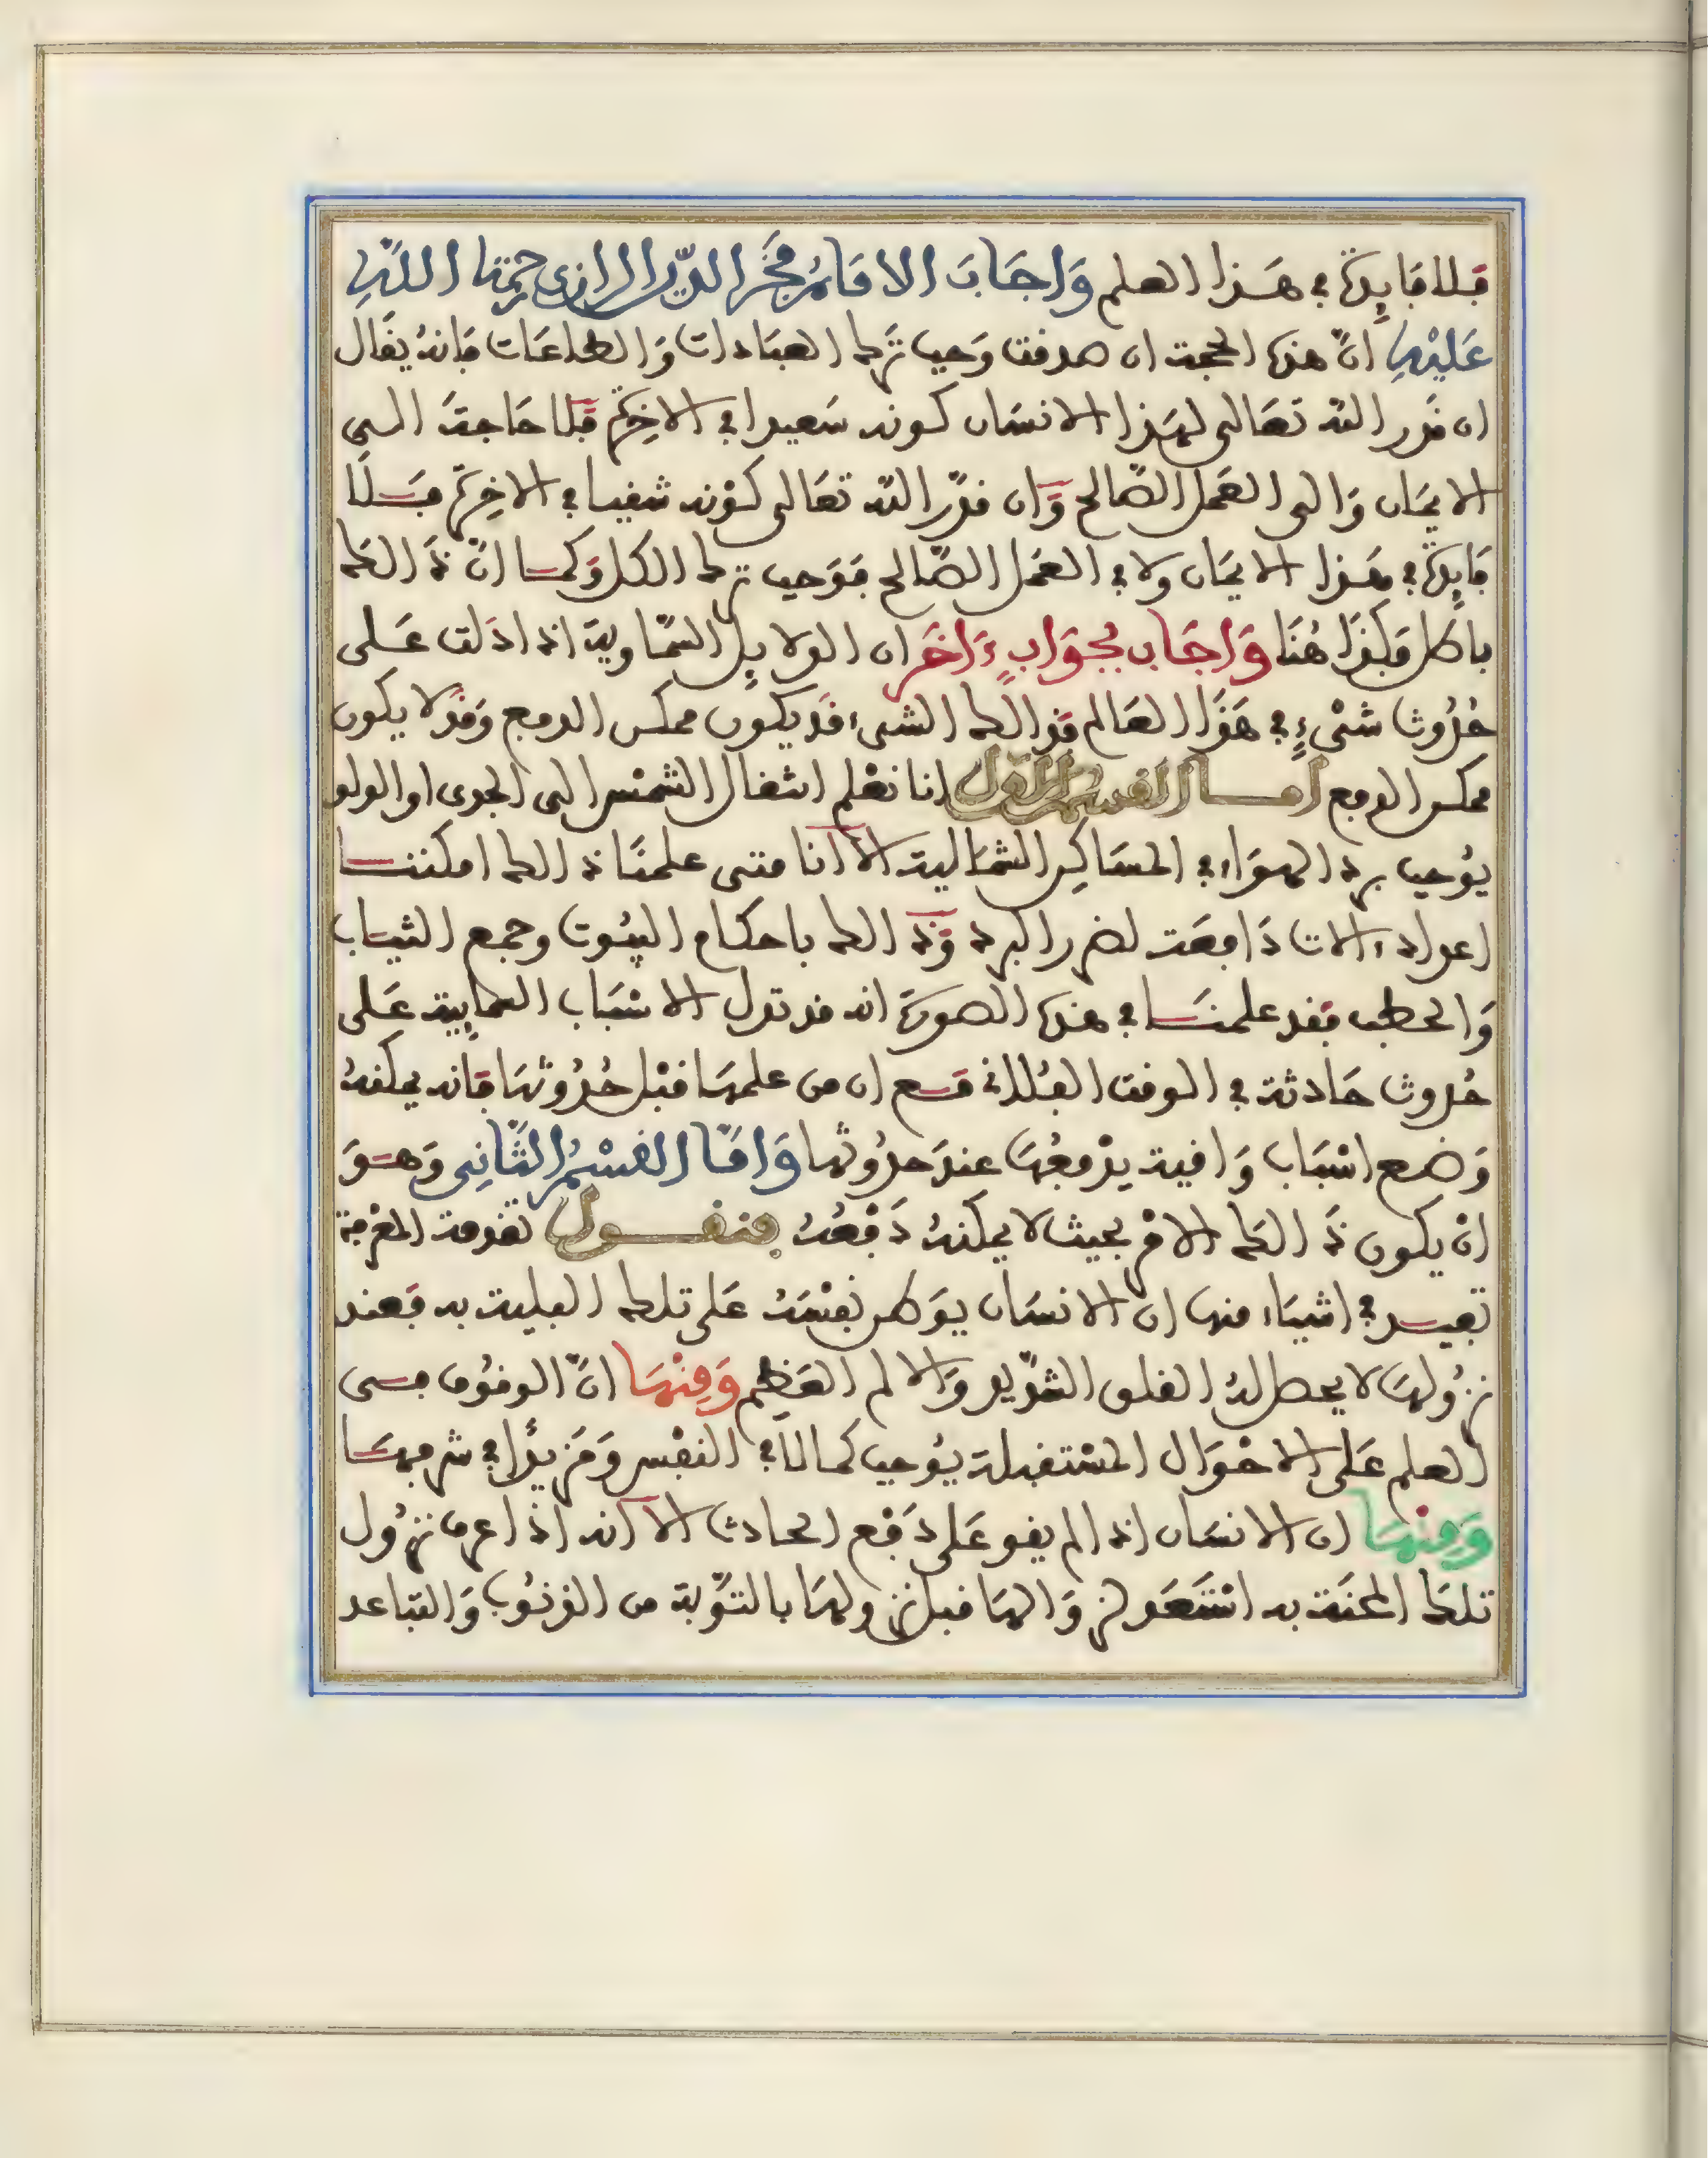 فلا فايدة في هذا العلم وَاجَابَ الامَامُ فَخر الدّين الرازى رحمة اللّهِ
عَلَيْهِ انّ هذه الحجة ان صدقت وَجب ترك العبَادات وَالطاعَات فانهُ يقَال
ان قدر الله تعَالى لهَذا الانسَان كونه سَعيدا في الاخِرة فلا حَاجة الى
الايمَان وَالى العَمل الصّالح وَان قدّر الله تعَالى كوْنه شقيا في الاخِرة فَلا
فايِدة في هَذا الايمَان ولا في العَمل الصّالح فوَجب ترك الكل وَكمَا انّ ذَالك
باطل فكذَا هُنَا وَاجَاب بجوَابٍ ءَاخَر ان الدلايِل السّمَاوية اذا دَلت عَلى
حُدُوث شيْءٍ في هَذَا العَالم فذالك الشيء قدْ يكون ممكن الدفع وَقدْ لا يكون
ممكن الدفع امَا القسمُ الاول انا نعْلم انتقال الشمْس الى الجدى او الدلو
يوُجب برد الهوَاء في المسَاكِن الشمَالية الا انا متى علمنَا ذالك امكننا
اعداد ءالات دَافعَة لضرر البرد وَذالك باحكام البيُوت وجمع الثيَاب
وَالحطب فقد علمنَا في هذه الصورَة انه قد تدل الاسْبَاب الغايِبة عَلى
حُدوث حَادثة في الوقت الفلاني مع ان من علمهَا قبْل حُدُوثهَا فانه يمكنهُ
وَضع اسْبَاب وَاقية يدْفعُهَا عندَ حدُوثها وَامّا القسْمُ الثّانِى وَهوَ
انْ يكون ذَالك الامْر بحيث لا يمكنهُ دَفْعُهُ فنقول تقدمة المعْرفة
تفيد في اشيَاء منها ان الانسَان يوَطن نفسَهُ عَلى تلك البلية به فعند
نزُولهَا لا يحصل لهُ القلق الشدِيد وَالالم العَظِيم وَمِنْهَا انّ الوقُوف في
العلم عَلى الاحْوَال المسْتقبلة يوُجب كمالا في النفْس وَمَزيدًا في شرفهَا
وَمِنْهَا ان الانسَان اذا لم يقو عَلى دَفْع الحادث الا انه اذا عرف نزُول
تلك المحْنَة به اسْتَعَد لزوَالهَا قبل نزولهَا بالتوْبة من الذنوُب وَالتبَاعد